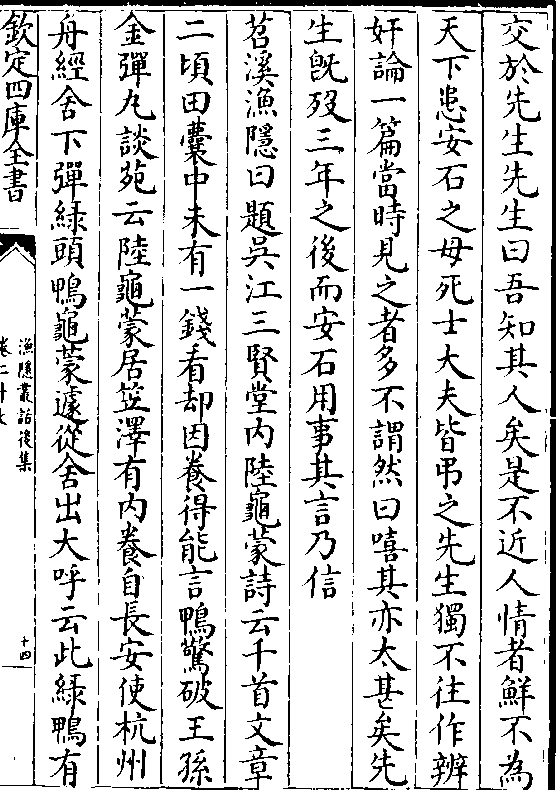 交於先生先生曰吾知其人矣是不近人情者鮮不為
天下患安石之母死士大夫皆弔之先生獨不往作辨
奸論一篇當時見之者多不謂然曰嘻其亦太甚矣先
生旣歿三年之後而安石用事其言乃信
苕溪漁隱曰題吳江三賢堂内陸龜蒙詩云千首文章
二頃田囊中未有一錢看却因養得能言鴨驚破王孫
金彈丸談苑云陸龜蒙居笠澤有内養自長安使杭州
舟經舍下彈綠頭鴨龜蒙遽從舍出大呼云此綠鴨有
欽定四庫全書
漁隱叢話後集
十四